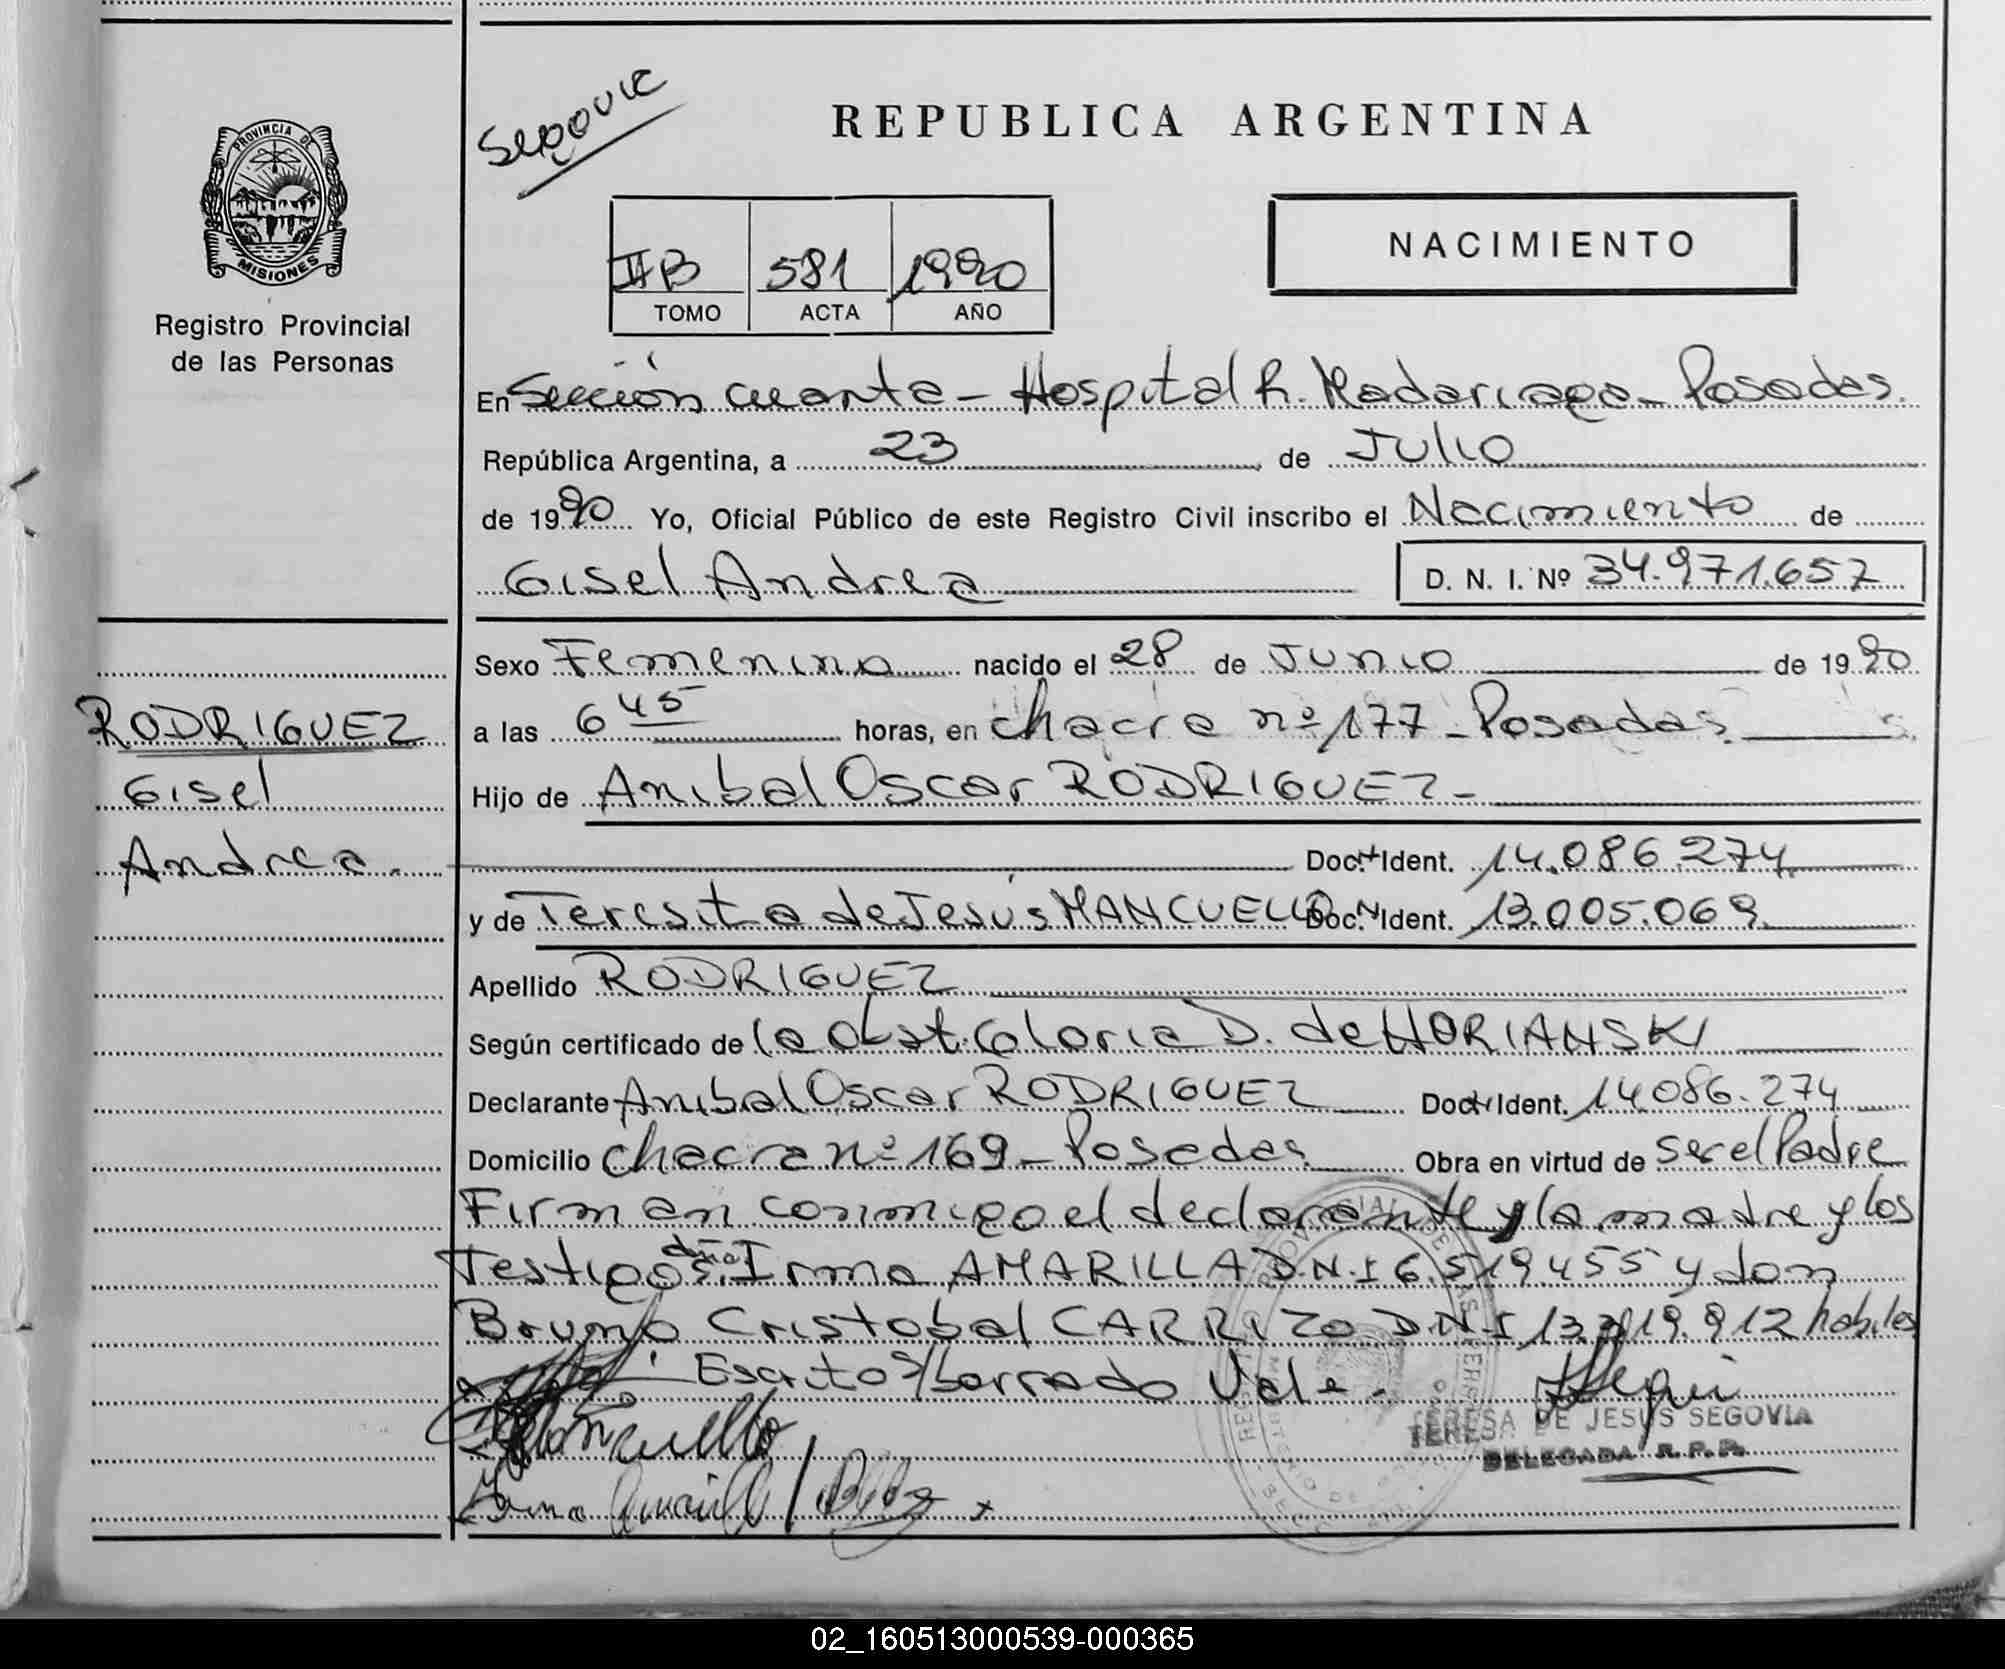 Segovia
REPUBLICA ARGENTINA
PROVINCIA DE
MISIONES
Registro Provincial
de las Personas
II B 581 1990
TOMO ACTA AÑO
NACIMIENTO
En Sección cuarta - Hospital R. Madariaga - Posadas.
República Argentina, a 23 de Julio
de 1990 Yo, Oficial Público de este Registro Civil inscribo el Nacimiento de
Gisel Andrea
D. N. I. Nº 34.971.657
Sexo Femenino nacido el 28 de Junio de 1990
a las 6 45 horas, en chacra nº 177 - Posadas.
Hijo de Anibal Oscar RODRIGUEZ -
Doc. Ident. 14.086.274
y de Teresita de Jesús MANCUELLO Doc. Ident. 13.005.069
Apellido RODRIGUEZ
Según certificado de la Obst. Gloria D. de HORIANSKI
Declarante Anibal Oscar RODRIGUEZ Doc. Ident. 14.086.274
Domicilio chacra nº 169 - Posadas Obra en virtud de ser el Padre
Firman conmigo el declarante y la madre y los
Testigos doña Irma AMARILLA D.N.I 6.519.455 y don
Bruno Cristobal CARRIZO D.N.I 13. 19.912 habiles
Escritos/borrado Vale.
Mancuello
TERESA DE JESUS SEGOVIA
DELEGADA R. P. P.
Irma Amarilla
RODRIGUEZ
Gisel
Andrea.
02_160513000539-000365